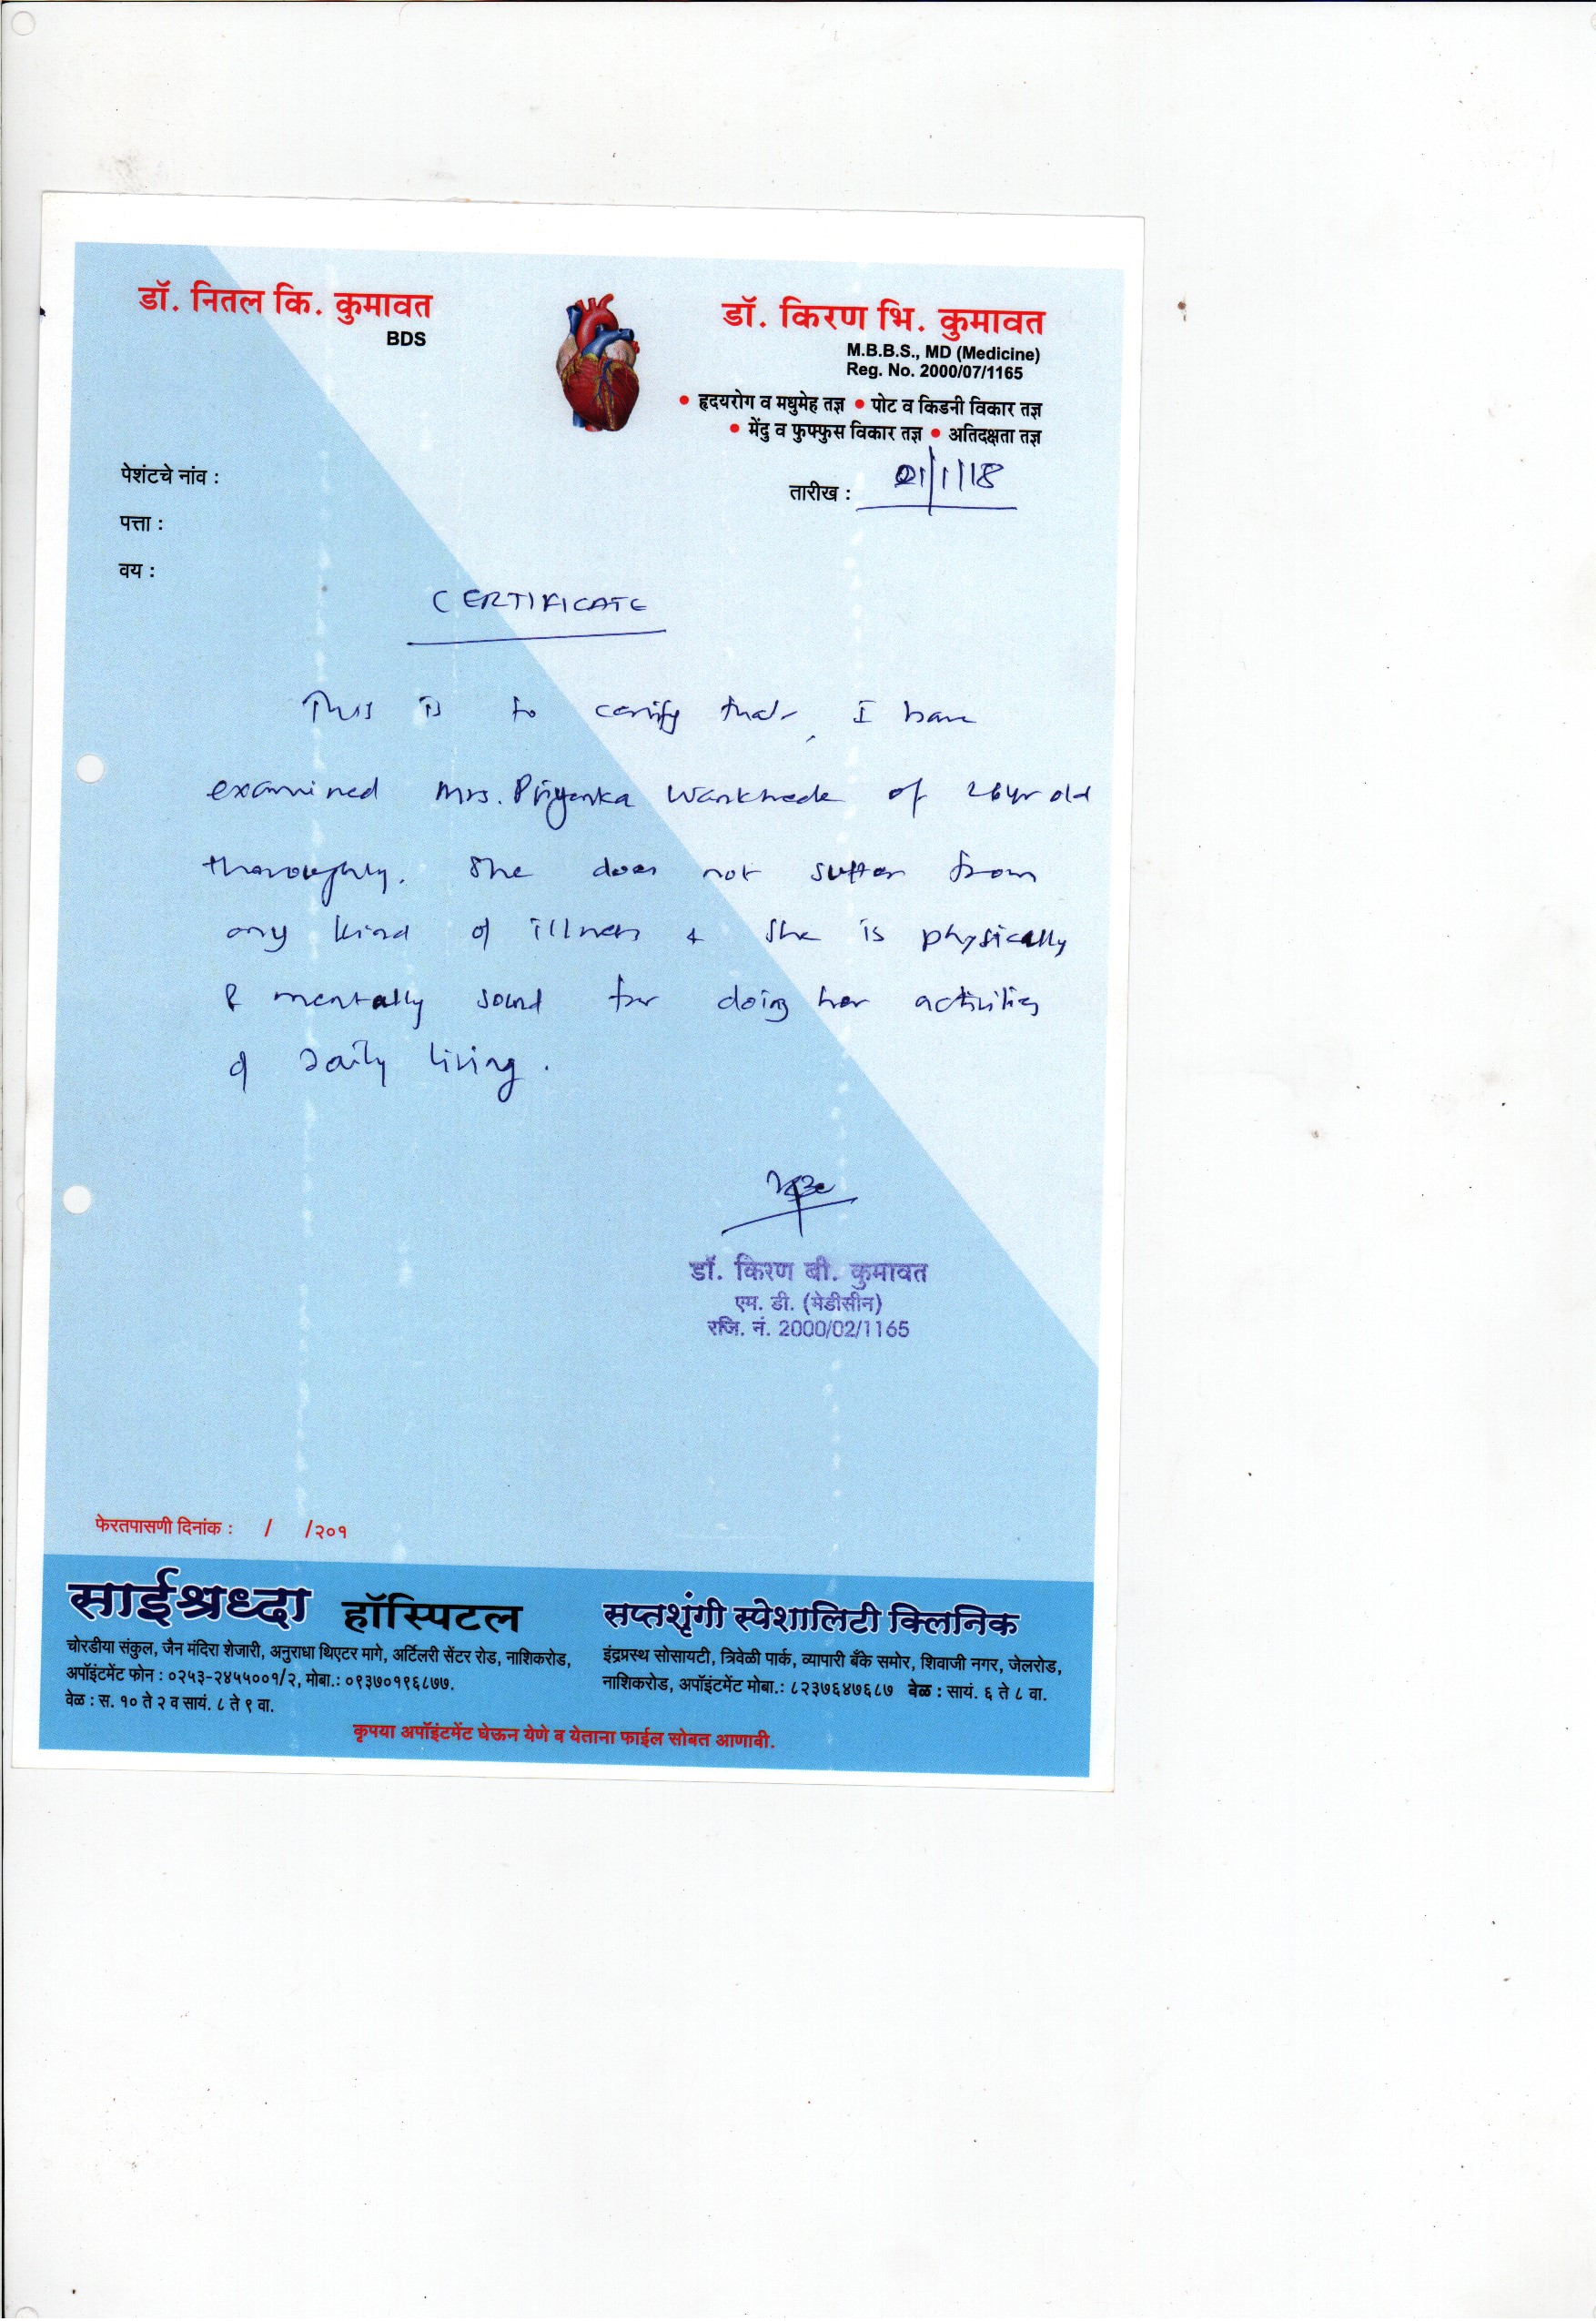 डॉ. नितल कि. कुमावत
BDS
डॉ. किरण भि. कुमावत
M.B.B.S., MD (Medicine)
Reg. No. 2000/07/1165
• हृदयरोग व मधुमेह तज्ञ • पोट व किडनी विकार तज्ञ
• मेंदु व फुफ्फुस विकार तज्ञ • अतिदक्षता तज्ञ
पेशंटचे नांव :
तारीख : 01/1/18
पत्ता :
वय :
CERTIFICATE
This is to certify that, I have
examined Mrs. Priyanka Wankhede of 26 yr old
thoroughly. She does not suffer from
any kind of illness & she is physically
& mentally sound for doing her activities
of daily living.
डॉ. किरण बी. कुमावत
एम. डी. (मेडीसीन)
रजि. नं. 2000/02/1165
फेरतपासणी दिनांक : / /२०१
साईश्रध्दा हॉस्पिटल
चोरडीया संकुल, जैन मंदिरा शेजारी, अनुराधा थिएटर मागे, अर्टिलरी सेंटर रोड, नाशिकरोड,
अपॉइंटमेंट फोन : ०२५३-२४५५००१/२, मोबा.: ०९३७०१९६८७७.
वेळ : स. १० ते २ व सायं. ८ ते ९ वा.
सप्तशृंगी स्पेशालिटी क्लिनिक
इंद्रप्रस्थ सोसायटी, त्रिवेळी पार्क, व्यापारी बँके समोर, शिवाजी नगर, जेलरोड,
नाशिकरोड, अपॉइंटमेंट मोबा.: ८२३७६४७६८७ वेळ : सायं. ६ ते ८ वा.
कृपया अपॉइंटमेंट घेऊन येणे व येताना फाईल सोबत आणावी.